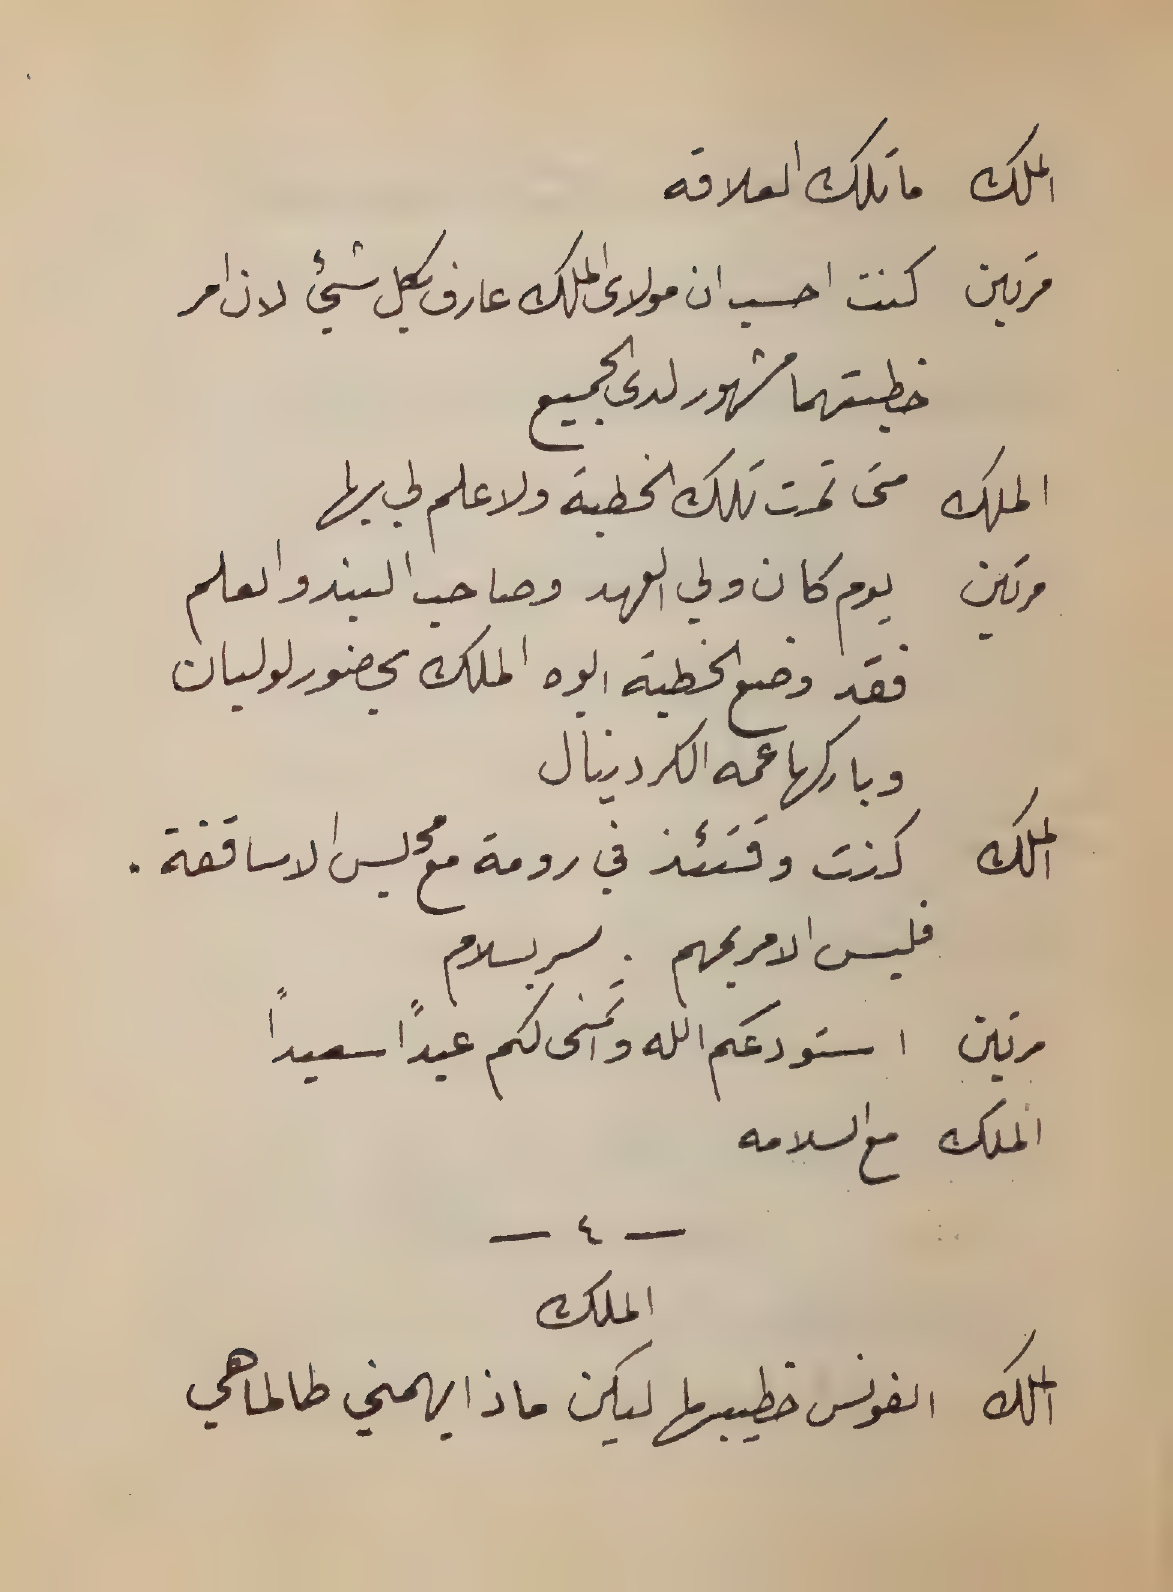 الملك ما تلك العلاقه
مرتين كنت احسب ان مولاى الملك عارف بكل شيئ لان امر
خطبتهما مشهور لدى الجميع
الملك متى تمت تلك الخطبة ولا علم لي بها
مرتين يوم كان ولي العهد وصاحب البند والعلم
فقد وضع الخطبة ابوه الملك بحضور لوليان
وباركها عمه الكردينال
الملك كنت وقتئذ في رومة مع مجلس الاساقفة .
فليس الامر بمهم . سر بسلام
مرتين استودعكم الله واتمنى لكم عيداً سعيداً
الملك مع السلامه
— ٤ —
الملك
الملك الفونس خطيبها ليكن ماذا يهمني طالما هي